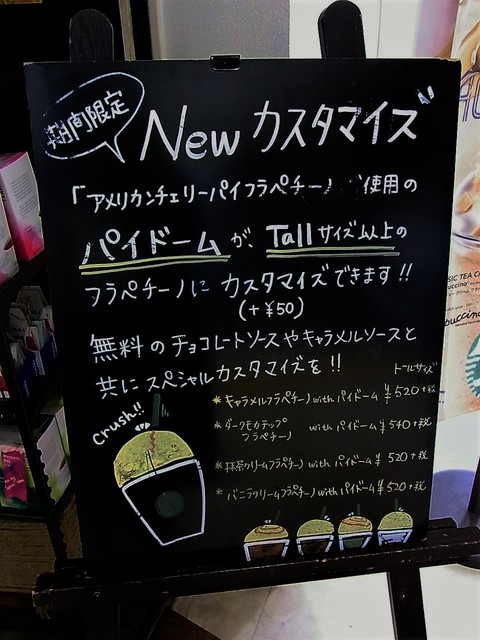 期間限定
New カスタマイズ
「アメリカンチェリーパイフラペチーノ 使用の
パイドームが、Tallサイズ以上の
フラペチーノに カスタマイズできます!!
(+¥50)
無料のチョコレートソースやキャラメルソースと
共にスペシャルカスタマイズを!!
トールサイズ
*キャラメルフラペチーノ with パイドーム ¥520+税
*ダークモカチップ
フラペチーノ with パイドーム ¥540+税
*抹茶クリームフラペチーノ with パイドーム ¥520+税
*バニラクリームフラペチーノ with パイドーム ¥520+税
crush!!